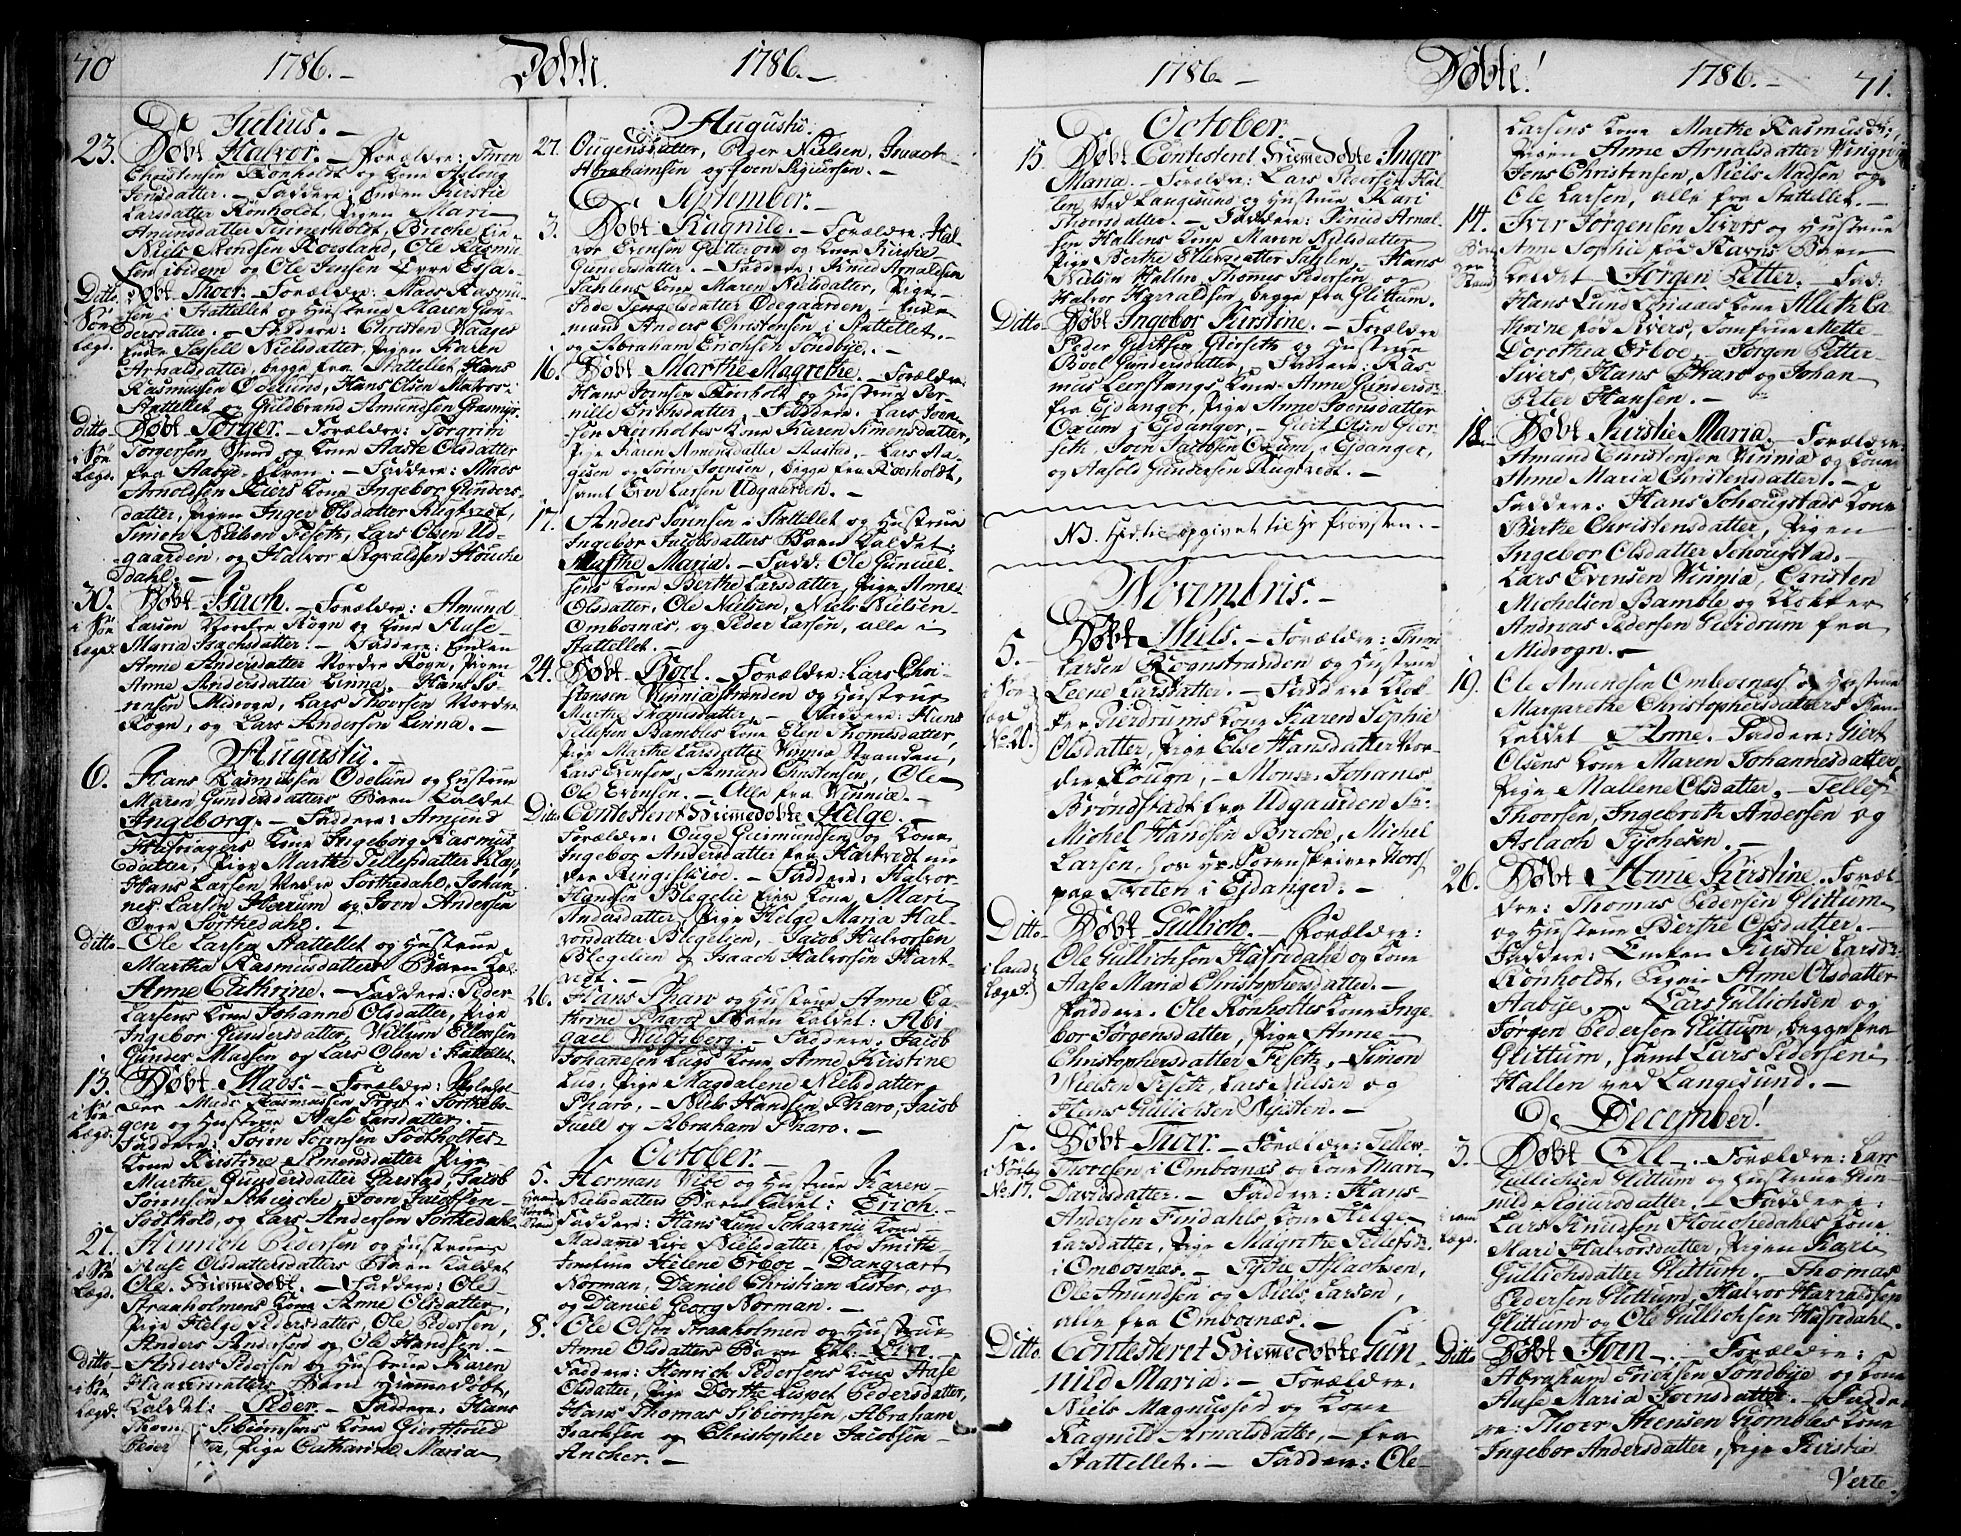 70 1786. – Døbte. 1786. –
De Julius. –
23. Døbt Halvor. – Forældre: Thron
Christensen Rönholdt og Kone Aslong
Jensdatter. – Faddere: Enken Kirstie
Larsdatter Rönholdt, Pigen Mari
Amunsdatter Tinnerholdt,
Niels
sen ibidem og Ole Jensen Övre Essa. –
Ditto Døbt Thoer. – Forældre: Mads Rasmus-
i Søe sen i Stattellet og Hustrue Maren Gun-
Lægd. dersdatter. – Faddere: Christen Waages
Enke Sessell Nielsdatter, Pigen Karen
Arnaldsdatter, begge fra Stattellet, Hans
Rasmussen Ödelund, Hans Olsen
Stattellet og Guldbrand Amundsen Grasmyr.
ditto Døbt Torger. – Forældre: Torgrim
i Søe Torgersen, Spind og Kone Aaste Olsdatter
Lægd. fra Aabye. – Faddere: Mads
Arnoldsen Kone Ingebor Gunders-
datter, Pigen Inger Olsdatter Rugtvedt,
Simen Nielsen Fesetz, Lars Olsen Ud-
gaarden, og Halvor Roraldsen Houche-
dahl. –
30. Døbt Isach. – Forældre: Amund
i Søe Larsen Nordre Rogn og Kone Aase
Lægd. Maria Isachsdatter. – Faddere: Enken
Anne Andersdatter Nordre Rogn, Pigen
Anne Andersdatter Linna. – Hans Sö-
rensen Midrogn, Lars Thorsen Nordre
Rogn, og Lars Andersen Linna. –
Augusty. –
6. Hans Rasmussen Ödelund og Hustrue
Maren Gundersdatters Barn kaldet
Ingeborg. – Faddere: Amund
Kone Ingeborg Rasmus-
datter, Pige Marthe Tellefsdatter
Hans Larsen Nedre Torthedahl, Johan-
nes Larsen Herrum og Joen Andersen
Övre Torthedahl. –
ditto Ole Larsen Stattellet og Hustrue
Martha Rasmusdatters Barn kal:
Anne Cathrine. – Faddere: Peder
Larsens Kone Johanne Olsdatter, Pige
Ingebor Gundersdatter, Villum Ellensen
Gunder Madsen og Lars Olsen i Stattellet.
13. Døbt Mads. – Forældre:
i Søe Mads Rasmussen
Lægd. gen og Hustrue Aase Larsdatter. –
Faddere: Sören Sörensen Todtholtes
Kone Kirstine Simensdatter Pige
Marthe Gundersdatter Garstad, Jacob
Sörensen Joen Jacobsen
Todthold, og Lars Andersen Torthedahl
27. Henrich Pedersen og Hustrues
i Søe Aase Olsdatters Barn kaldet
Lægd. Ole. Hiemedøbt. – Faddere: Ole
Straaholmens Kone Anne Olsdatter,
Pige Helge Pedersdatter, Ole Pedersen,
Anders Anderssen og Ole Handsen. –
Ditto Anders Pedersen og Hustrue Karen
i Søe Haavorsdatters Barn Hiemedøbt,
Lægd. kaldet: Peder. – Faddere: Hans
Thom Sibiörnsens Kone Giertruud
Peder Pige Catharine Maria
Augusty.
27. Ougensdatter, Peder Nielsen, Isaach
Abrahamsen og Sven Siguersen. –
De September. –
3. Døbt Ragnild. – Forældre: Hal-
vor Evensen og Kone Kirstie
Gundersdatter. – Faddere: Knud Arnoldsen
Sahlens Kone Maren Nielsdatter, Pige
Tengelsdatter Ödegaarden,
mand Anders Christensen i Stattellet. –
og Abraham Erichsen Söndbye. –
16. Døbt Marthe Magrethe. – Forældre:
Hans Joensen Rönholt og Hustrue Per-
nille Erichsdatter. – Faddere: Lars Joen-
sen Rörholtes Kone Karen Simensdatter,
Pige Karen Amundsdatter Aasted, – Lars Aa-
gesen og Sören Joensen, begge fra Rörholdt,
samt Even Larsen Udgaarden. –
17. Anders Sörensen i Stattellet og Hustrue
Ingebor Jacobsdatters Barn kaldet:
Marthe Maria. – Fadd: Ole Guneul-
sens Kone Berthe Larsdatter, Pige Anne
Olsdatter, Ole Nielsen, Niels Nielsen
Ombornæs, og Peder Larsen, alle i
Stattellet. –
24. Døbt Boel. – Forældre: Lars Chri-
stensen Vinniæ Stranden og Hustrue
Marthe Thomisdatter. – Faddere: Hans
Tellefsen Bambles Kone Elen Thomisdatter,
Pige Marthe Larsdatter Vinniæ Stranden,
Lars Evensen, Amund Christensen, Ole
Ole Evensen. – Alle fra Vinniæ. –
Ditto Contesteret Hiemedøbte Helge. –
Forældre: Ouge Guemundsen og Kone
Ingebor Andersdatter fra Hartvedt un-
der Ringiskiöe. – Faddere: Halvor
Handsen Blegelie Kone Mari
Andersdatter, Pige Helge Maria Hal-
vorsdatter Blegelien, – Jacob Halvorsen
Blegelien og Isaach Halvorsen Hart-
vedt. –
26. Hans Pharo og Hustrue Anne Ca-
thrine Pharos Barn kaldet: Abi-
gael Veltzberg. – Faddere: Jacob
Johannesen Lugs Kone Anne Kirstine
Lug, Pige Magdalene Nielsdatter
Pharo. – Niels Handsen Pharo, Jacob
Juell og Abraham Pharo. –
October. –
5. Herman Vise og Hustrue Karen
Nielsdatters Barn kaldet: Erich. –
Faddere: Hans Lund Kone
Madame Lise Nielsdatter, fød Smitte
Jomfrue Helene Erboe – Dangvart
Norman, Daniel Christian Lister, og
og Daniel Georg Norman. –
8. Ole Olsön Straaholmen og Hustrue
Anne Olsdatters Barn kal: Live. –
Faddere: Henrich Pedersens Kone Aase
Olsdatter, Pige Dorthe Lispet Pedersdatter,
Hans Thomas Sibiörnsen, Abraham
Isachsen og Christopher Jacobsen
Ancher. –
1786. – Døbte! 1786. – 71.
De October. –
15. Døbt Contesteret Hiemedøbte Inger
Maria. – Forældre: Lars Pedersen Hal-
len ved Langesund og Hustrue Kari
Thorsdatter. – Faddere: Knud Arnol-
sen Hallens Kone Maren Nielsdatter
Pige Berthe Ellensdatter Sahlen, – Hans
Nielsen Hallen, Thomas Pedersen og
Halvor Harraldsen, begge fra Glittum.
Ditto Døbt Ingebor Kirstine. – Forældre
Peder Giertsen Giörseth og Hustrue
Boel Gundersdatter, – Faddere: Ras-
mus Leerstangs Kone Anne Gundersd:
fra Ejdanger, Pige Anne Joensdatter
Oxum i Ejdanger, – Giert Olsen Giör-
seth, Joen Jacobsen Oxum, i Ejdanger,
og Aasold Gundersen Rugtvedt. –
NB. Hidtil opgivet til Hr: Provsten. –
Novembris. –
5. Døbt Niels. – Forældre: Thron
i Søe Larsen Rognstranden og Hustrue
Lægd Leene Larsdatter. – Faddere: Klok-
No. 20. ker Gierdrums Kone Karen Sophie
Olsdatter, Pige Else Hansdatter Nor-
dre Rougn, – Mons: Johanes
Bröndstadt fra Udgaarden Sr:
Michel Handsen Breche, Michel
Larsen, hos Hr: Sorenskriver
paa Tveten i Ejdanger. –
Ditto Døbt Gullich. – Forældre:
i land Ole Gullichsen Hafsedahl og Kone
Lægd. Aase Maria Christophersdatter. –
Faddere: Ole Rönholtes Kone Inge-
bor Jörgensdatter, Pige Anne
Christophersdatter Fesetz, – Simon
Nielsen Fesetz, Lars Nielsen og
Hans Gullichsen Nysten. –
12. Døbt Thoer. – Forældre: Tellev
i Søelæg Thoresen i Ombornæs og Kone Mari
No. 17. Davidsdatter. – Faddere: Hans
Andersen Findahls Kone Helge
Larsdatter, Pige Magrethe Tellefsd:
i Ombornæs. – Tyche Aslachsen,
Ole Amundsen og Niels Larsen,
alle fra Ombornæs. –
Ditto. Contesteret Hiemedøbte Gun-
nild Maria. – Forældre:
Niels Magnussen og Kone
Ragnild Arnoldsdatter, – fra
Stattellet. – Faddere: Ole
Larsens Kone Marthe Rasmusd:,
Pigen Anne Arnalsdatter
Jens Christensen, Niels Madsen og
Ole Larsen, alle fra Stattellet. –
14. Iver Jörgensen Sivers og Hustrue
Anne Sophie fød Ravns Barn
kaldet Jörgen Petter. – Fad:
Hans Lund Kone Alleth Ca-
thrine fød Sivers, Jomfrue Mette
Dorothea Erboe, – Jörgen Petter
Sivers, Hans Pharo og Johan
Peter Hansen. –
18. Døbt Kirstie Maria. – Forældre:
Amund Christensen Vinniæ og Kone
Anne Maria Christensdatter. –
Faddere: Hans Schougstads Kone
Berthe Christensdatter, Pigen
Ingebor Olsdatter Schougstad. –
Lars Evensen Vinniæ, Christen
Michelsen Bamble og Klokker
Andreas Pedersen Gierdrum fra
Midrogn. –
19. Ole Amundsen Ombornæs og Hustrue
Margarethe Christophersdatters Barn
kaldet Anne. Faddere: Giert
Olsens Kone Maren Johannesdatter
Pige Mallene Olsdatter, – Tellef
Thoersen, Ingebreth Andersen og
Aslach Tychesen. –
26. Døbt Anne Kirstine. Foræl-
dre: Thomas Pedersen Glittum
og Hustrue Berthe Olsdatter. –
Faddere: Enken Kirstie Larsd:
Rönholdt, Pigen Anne Olsdatter
Aabye, – Lars Gullichsen og
Jörgen Pedersen Glittum, begge fra
Glittum, samt Lars Pedersen
Hallen ved Langesund. –
De December!
3. Døbt Ole. – Forældre: Lars
Gullichsen Glittum og Hustrue Gun-
nild Siguersdatter. – Faddere:
Lars Knudsen Houchedahls Kone
Mari Halvorsdatter, Pigen Kari
Gullichsdatter Glittum. – Thomas
Pedersen Glittum, Halvor Harraldsen
Glittum og Ole Gullichsen Hafsedahl.
Ditto Døbt Joen. – Forældre:
Abraham Ericksen Söndbye og Kone
Aase Maria Joensdatter. – Fadde-
re: Thoer Stensen Gromblas Kone
Ingebor Andersdatter, Pige Kirstie
Verte.